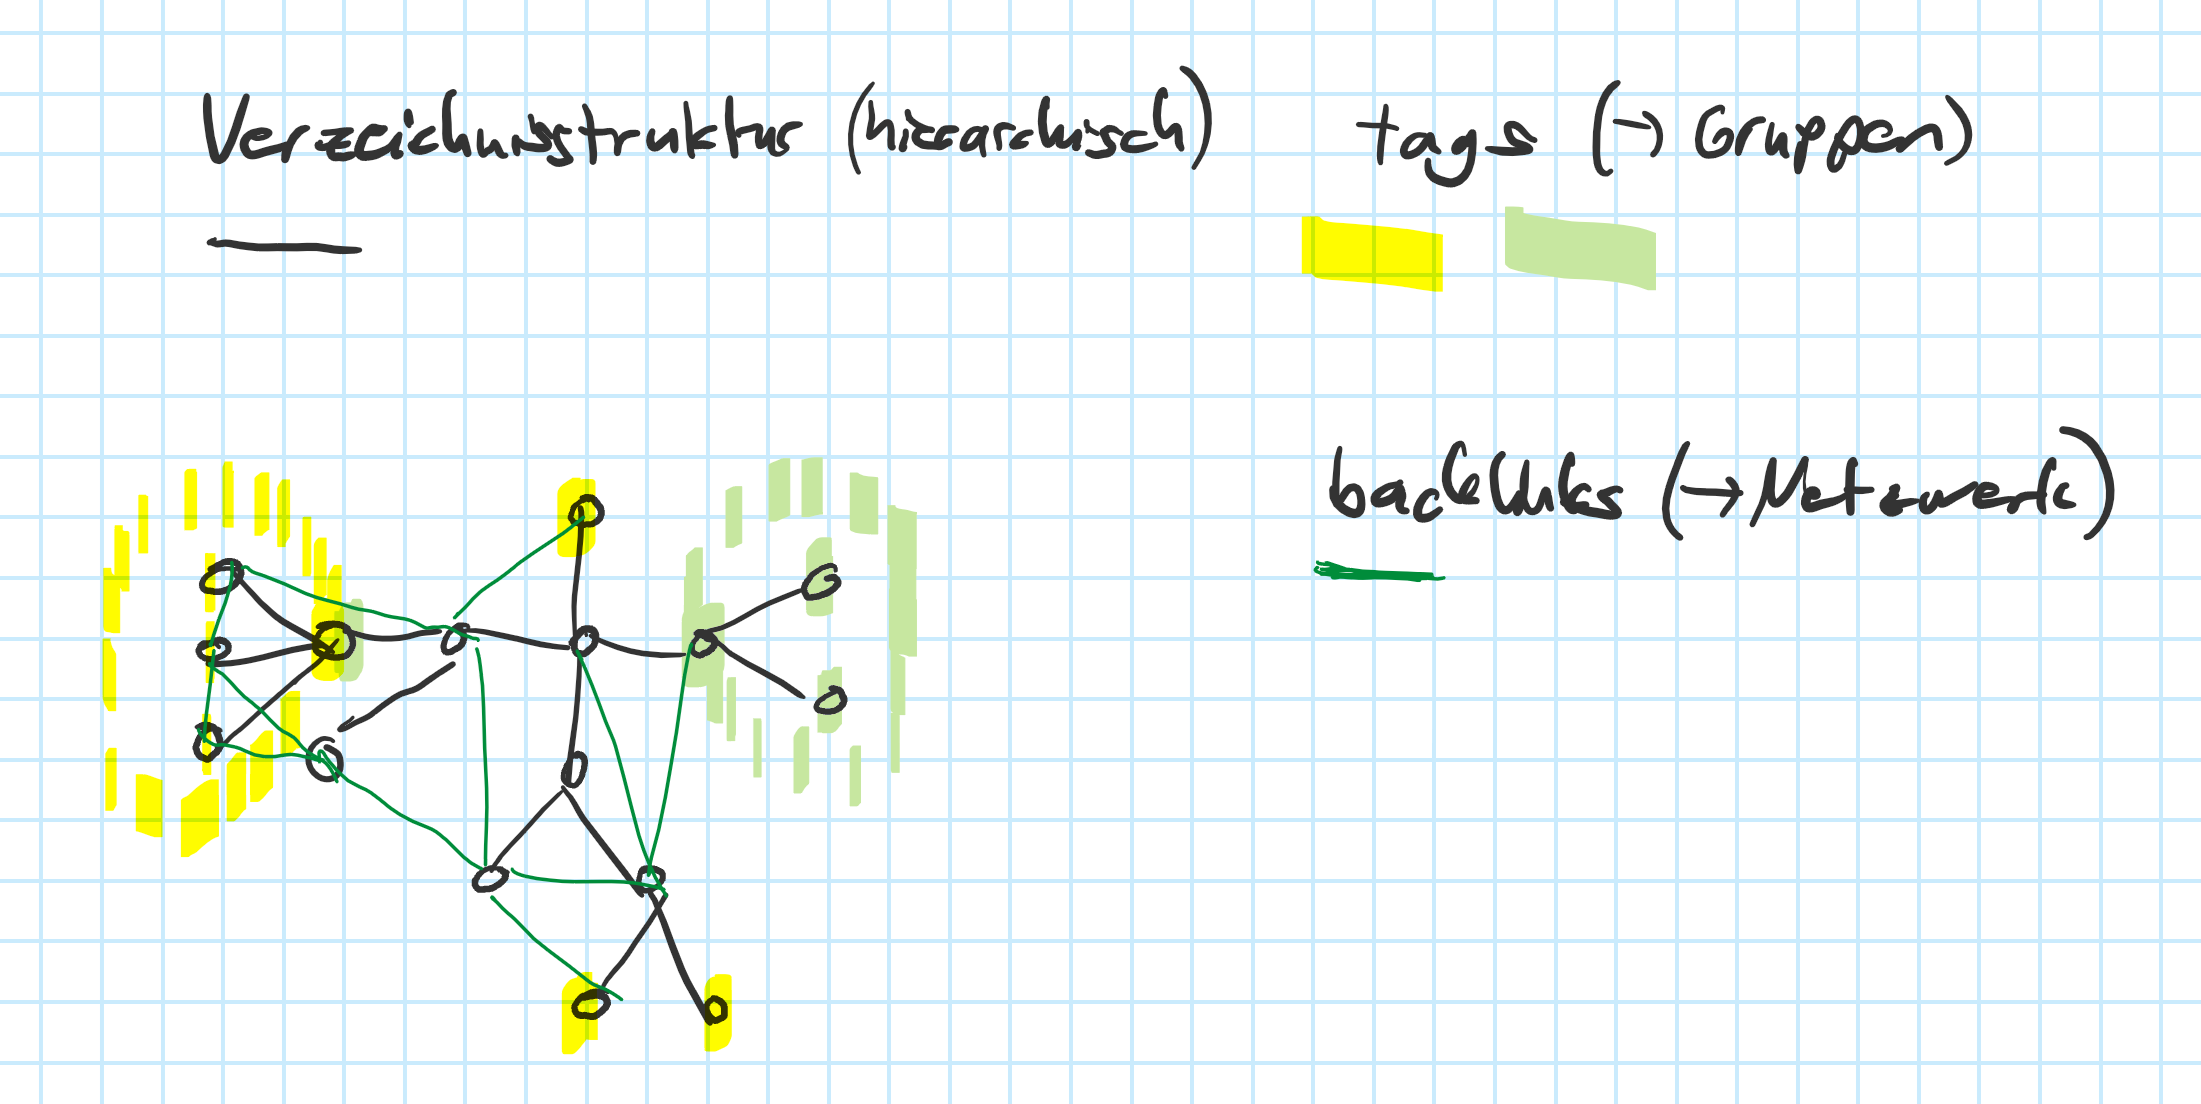 Verzeichnisstruktur (hierarchisch)
tags (→ Gruppen)
backlinks (→ Netzwerk)